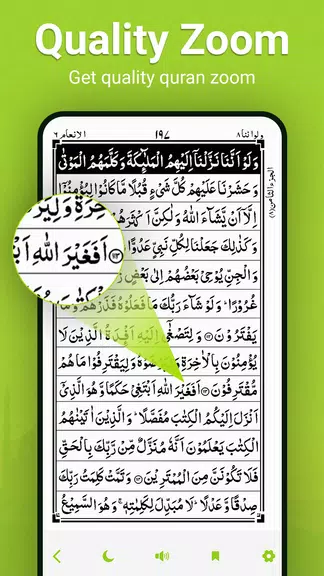 Quality Zoom
Get quality quran zoom
ولواننا ٨
١٩٧
الانعام ٦
وَلَوۡ اَنَّنَا نَزَّلۡنَاۤ اِلَيۡهِمُ الۡمَلٰٓٮِٕكَةَ وَكَلَّمَهُمُ الۡمَوۡتٰى
وَحَشَرۡنَا عَلَيۡهِمۡ كُلَّ شَىۡءٍ قُبُلًا مَّا كَانُوۡا لِيُؤۡمِنُوۡۤا
اِلَّاۤ اَنۡ يَّشَآءَ اللّٰهُ وَلٰـكِنَّ اَكۡثَرَهُمۡ
وَكَذٰلِكَ جَعَلۡنَا لِكُلِّ نَبِىٍّ عَدُوًّا
وَالۡجِنِّ يُوۡحِىۡ بَعۡضُهُمۡ اِلٰى بَعۡضٍ
غُرُوۡرًا ؕ وَلَوۡ شَآءَ رَبُّكَ مَا فَعَلُوۡهُ فَذَرۡهُمۡ وَمَا
يَفۡتَرُوۡنَ ۞ وَلِتَصۡغٰٓى اِلَيۡهِ اَفۡـِٕدَةُ الَّذِيۡنَ لَا
يُؤۡمِنُوۡنَ بِالۡاٰخِرَةِ وَلِيَرۡضَوۡهُ وَلِيَقۡتَرِفُوۡا مَا هُمۡ
مُّقۡتَرِفُوۡنَ ۞ اَفَغَيۡرَ اللّٰهِ اَبۡتَغِىۡ حَكَمًا وَّهُوَ الَّذِىۡۤ
اَنۡزَلَ اِلَيۡكُمُ الۡـكِتٰبَ مُفَصَّلًا ؕ وَالَّذِيۡنَ اٰتَيۡنٰهُمُ
الۡـكِتٰبَ يَعۡلَمُوۡنَ اَنَّهٗ مُنَزَّلٌ مِّنۡ رَّبِّكَ بِالۡحَـقِّ
فَلَا تَكُوۡنَنَّ مِنَ الۡمُمۡتَرِيۡنَ ۞ وَتَمَّتۡ كَلِمَتُ رَبِّكَ
صِدۡقًا وَّعَدۡلًا ؕ لَا مُبَدِّلَ لِكَلِمٰتِهٖ ۚ وَهُوَ السَّمِيۡعُ
الجزء الثامن (٨)
اَفَغَيۡرَ اللّٰهِ